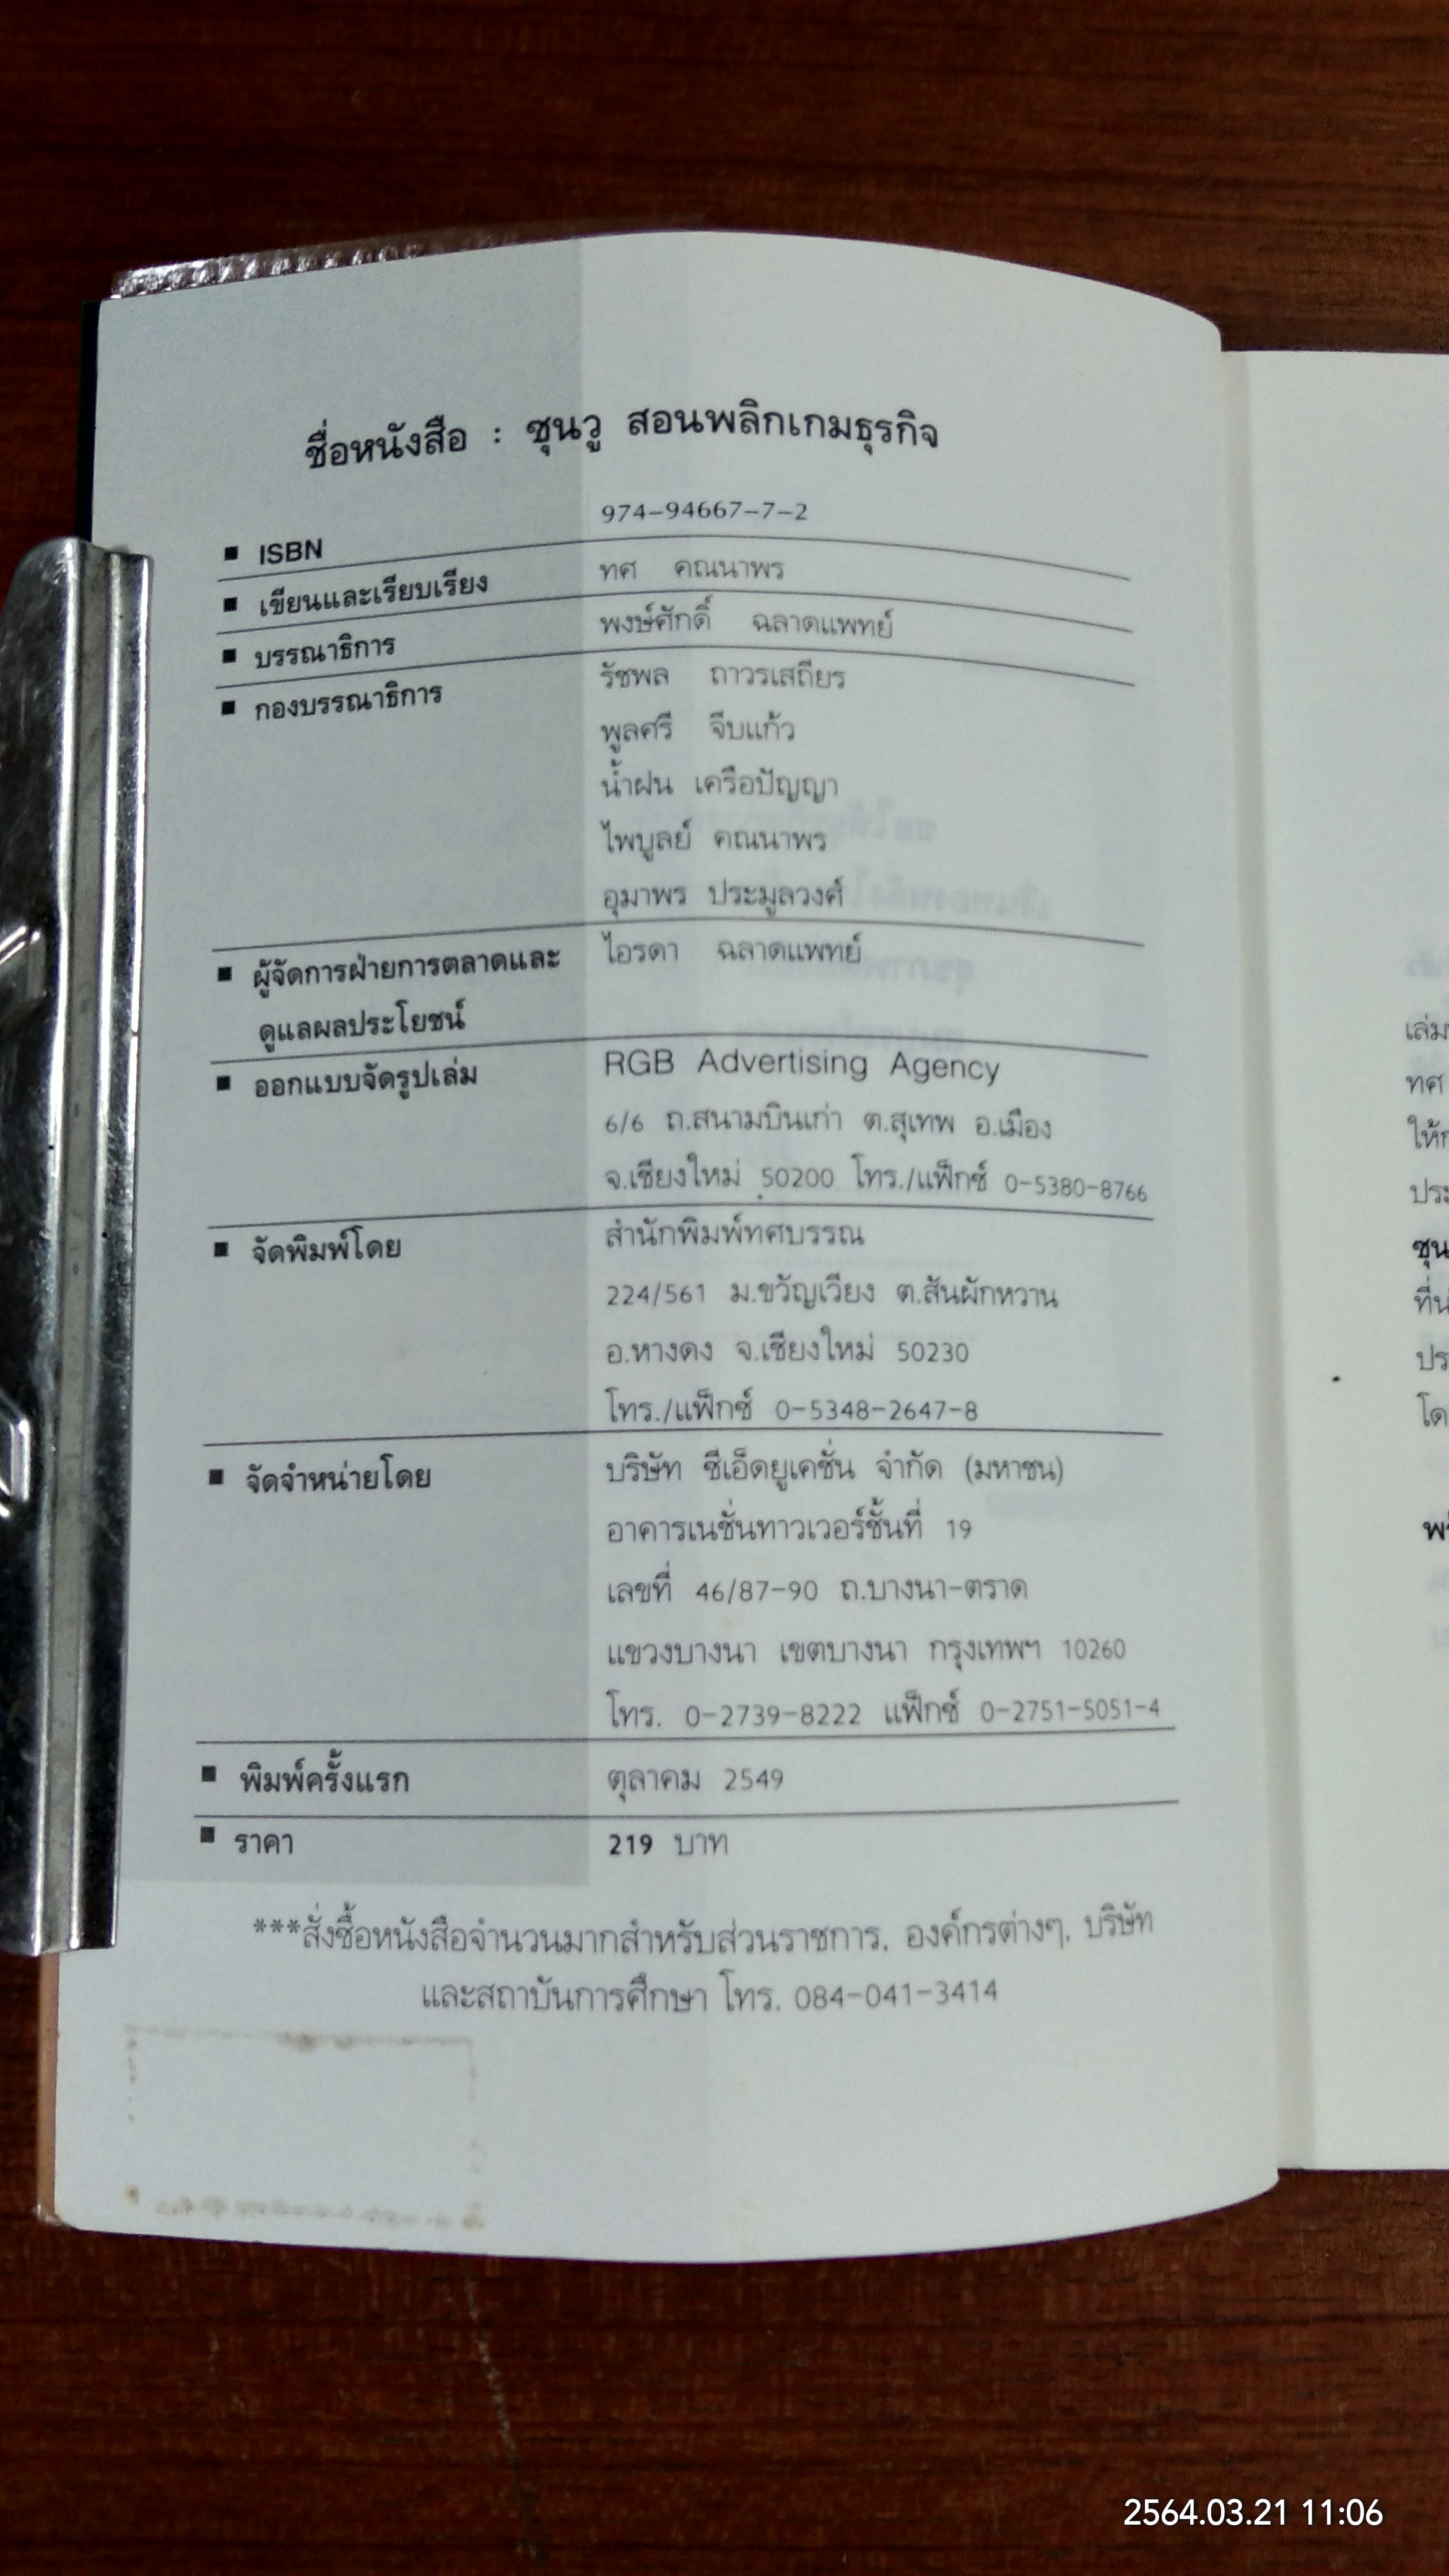 ชื่อหนังสือ : ซุนวู สอนพลิกเกมธุรกิจ
■ ISBN 974-94667-7-2
■ เขียนและเรียบเรียง ทศ คณนาพร
■ บรรณาธิการ พงษ์ศักดิ์ ฉลาดแพทย์
■ กองบรรณาธิการ รัชพล ถาวรเสถียร
พูลศรี จีบแก้ว
น้ำฝน เครือปัญญา
ไพบูลย์ คณนาพร
อุมาพร ประมูลวงศ์
■ ผู้จัดการฝ่ายการตลาดและ ไอรดา ฉลาดแพทย์
ดูแลผลประโยชน์
■ ออกแบบจัดรูปเล่ม RGB Advertising Agency
6/6 ถ.สนามบินเก่า ต.สุเทพ อ.เมือง
จ.เชียงใหม่ 50200 โทร./แฟ็กซ์ 0-5380-8766
■ จัดพิมพ์โดย สำนักพิมพ์ทศบรรณ
224/561 ม.ขวัญเวียง ต.สันผักหวาน
อ.หางดง จ.เชียงใหม่ 50230
โทร./แฟ็กซ์ 0-5348-2647-8
■ จัดจำหน่ายโดย บริษัท ซีเอ็ดยูเคชั่น จำกัด (มหาชน)
อาคารเนชั่นทาวเวอร์ชั้นที่ 19
เลขที่ 46/87-90 ถ.บางนา-ตราด
แขวงบางนา เขตบางนา กรุงเทพฯ 10260
โทร. 0-2739-8222 แฟ็กซ์ 0-2751-5051-4
■ พิมพ์ครั้งแรก ตุลาคม 2549
■ ราคา 219 บาท
***สั่งซื้อหนังสือจำนวนมากสำหรับส่วนราชการ, องค์กรต่างๆ, บริษัท
และสถาบันการศึกษา โทร. 084-041-3414
เล่ม
ทศ
ซุน
2564.03.21 11:06